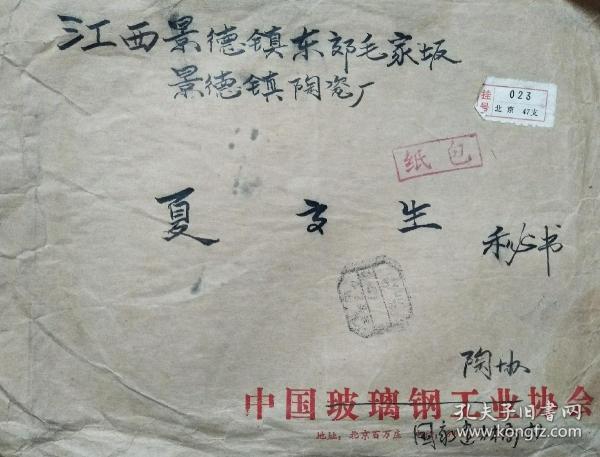 江西景德镇东郊毛家坂
景德镇陶瓷厂
挂号
023
北京 47支
纸包
夏 生
秘书
陶协
中国玻璃钢工业协会
地址：北京百万庄
国家建材局
孔夫子旧书网
www.kongfz.com